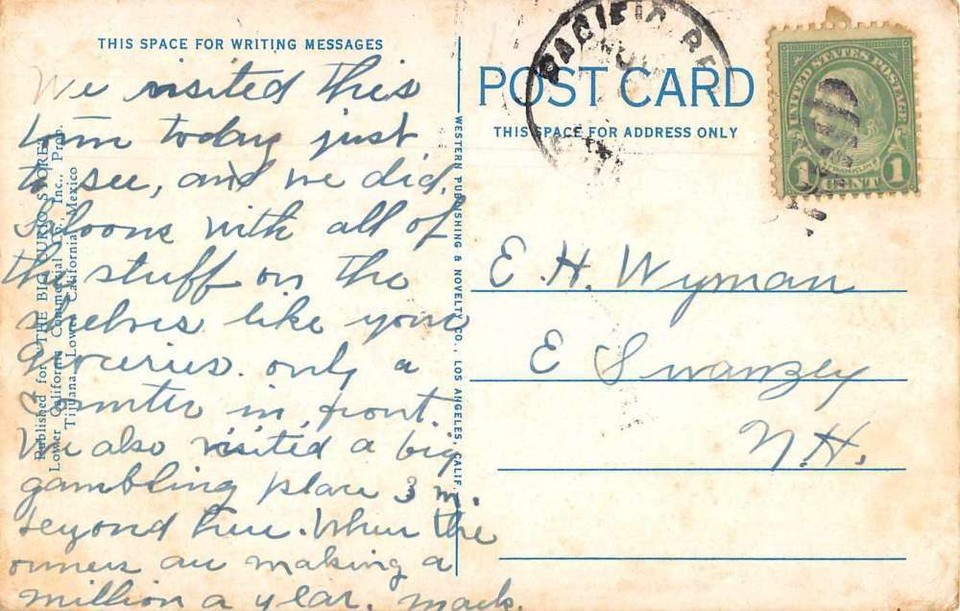 THIS SPACE FOR WRITING MESSAGES
We visited this
town today just
to see, and we did.
Saloons with all of
the stuff on the
shelves like your
groceries. only a
counter in front.
We also visited a big
gambling place 3 m.
beyond here. When the
owners are making a
million a year. Mack.
Published for "THE BIG CURIO STORE",
Lower California Commercial Co., Inc., Prop.
Tijuana, Lower California, Mexico
WESTERN PUBLISHING & NOVELTY CO., LOS ANGELES, CALIF.
PACIFIC B
NOV
POST CARD
THIS SPACE FOR ADDRESS ONLY
UNITED STATES POSTAGE
FRANKLIN
1 CENT 1
E. H. Wyman
E Swanzey
N.H.